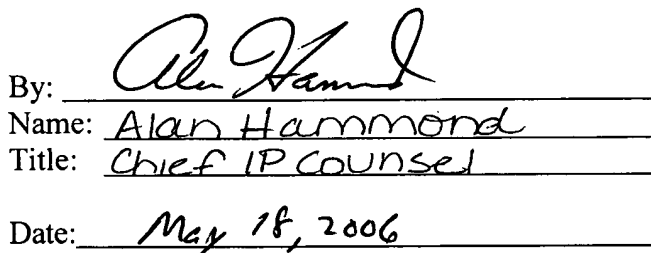 By: Alan Hammond
Name: Alan Hammond
Title: Chief IP Counsel
Date: May 18, 2006